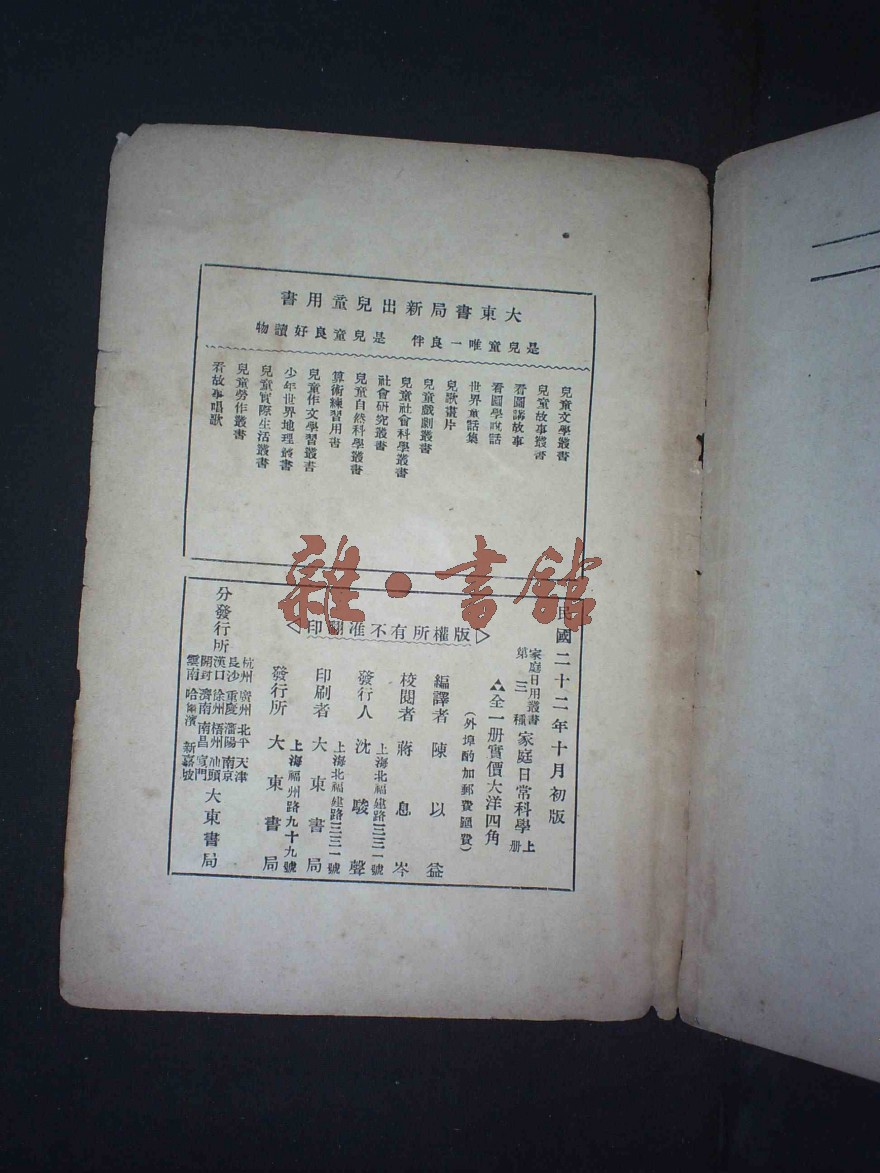 大東書局新出兒童用書
是兒童唯一良伴　是兒童良好讀物
兒童文學叢書
兒童故事叢書
看圖講故事
看圖學說話
世界童話集
兒歌畫片
兒童戲劇叢書
兒童社會科學叢書
社會研究叢書
兒童自然科學叢書
算術練習用書
兒童作文學習叢書
少年世界地理叢書
兒童實際生活叢書
兒童勞作叢書
看故事唱歌
雜·書館
民國二十二年十月初版
家庭日用叢書
第三種
家庭日常科學上册
全一册實價大洋四角
（外埠酌加郵費匯費）
版權所有不准翻印
編譯者　陳以益
校閱者　蔣息岑
發行人　沈駿聲
上海北福建路三三一號
印刷者　大東書局
上海北福建路三三一號
發行所　大東書局
上海福州路九十九號
分發行所
杭州　廣州　北平　天津
長沙　重慶　瀋陽　南京
漢口　徐州　梧州　汕頭
開封　濟南　南昌　廈門
雲南　哈爾濱　新嘉坡
大東書局